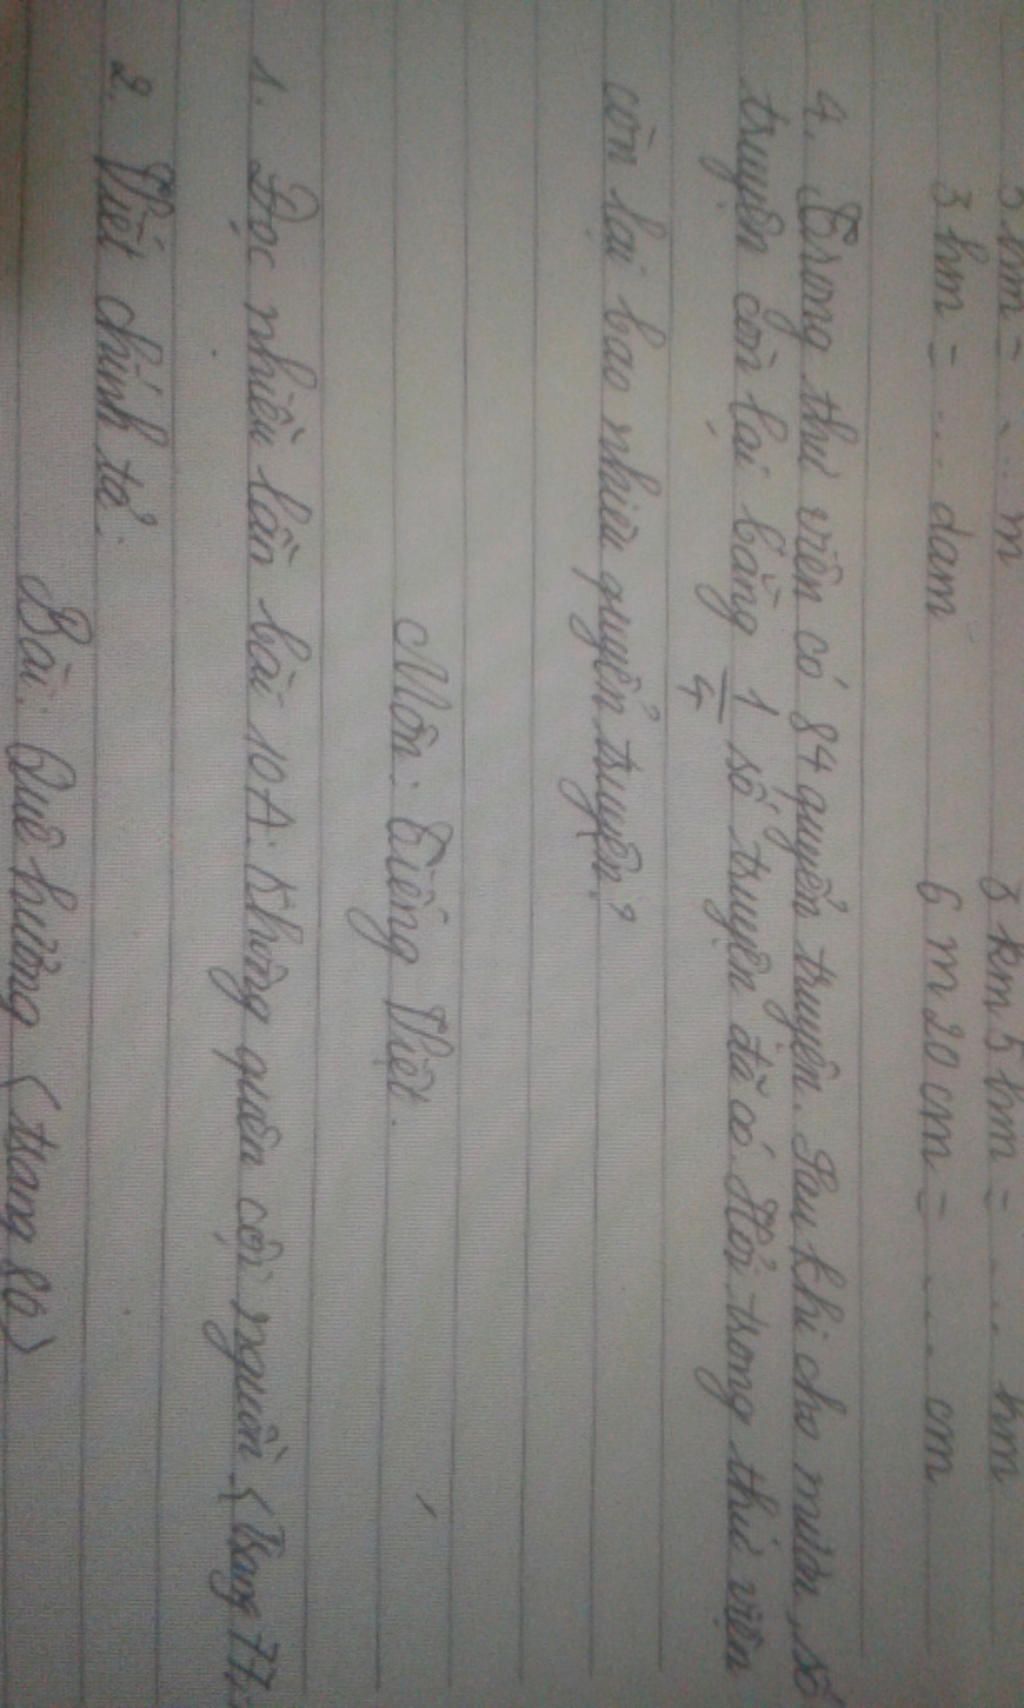 hm = ... m 3 km 5 hm = .... hm
3 hm = ... dam 6 m 20 cm = .... cm
4. Trong thư viện có 84 quyển truyện. Sau khi cho mượn, số
truyện còn lại bằng 1/4 số truyện đã có. Hỏi trong thư viện
còn lại bao nhiêu quyển truyện?
Môn: Tiếng Việt.
1. Đọc nhiều lần bài 10A: Không quên cội nguồn (Trang 77
2. Viết chính tả:
Bài: Quê hương (trang 80)